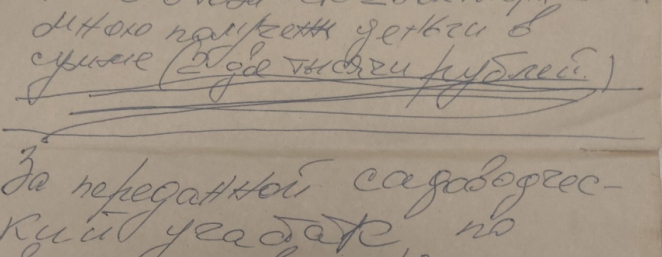 мною получен деньги в
сумме (2 две тысячи рублей.)
За переданной садоводчес-
кий участок, по